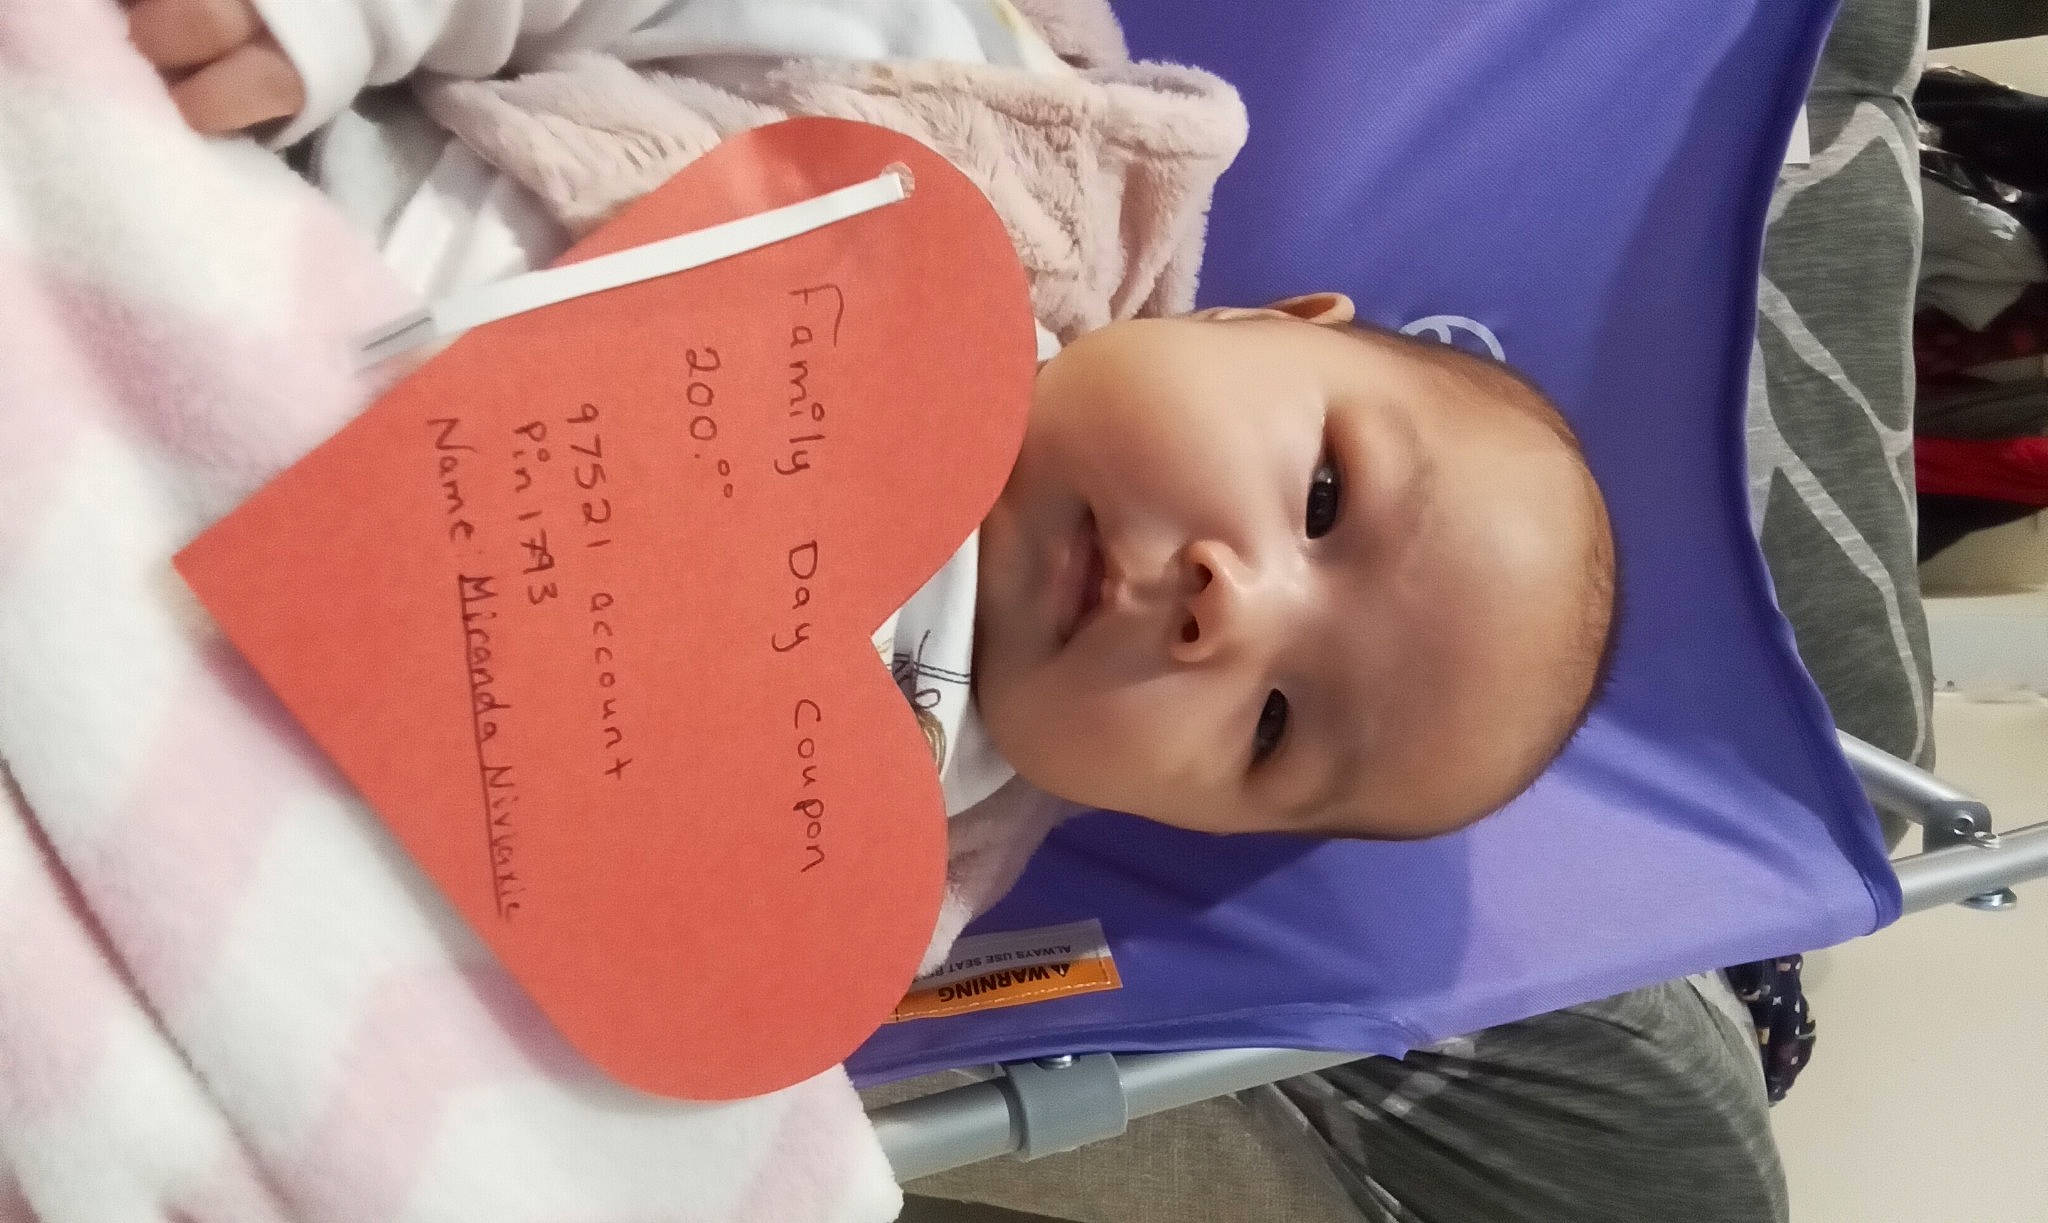 Family Day Coupon
200.00
97521 account
Pin 1793
Name: Miranda Niviaxie
WARNING
ALWAYS USE SEAT